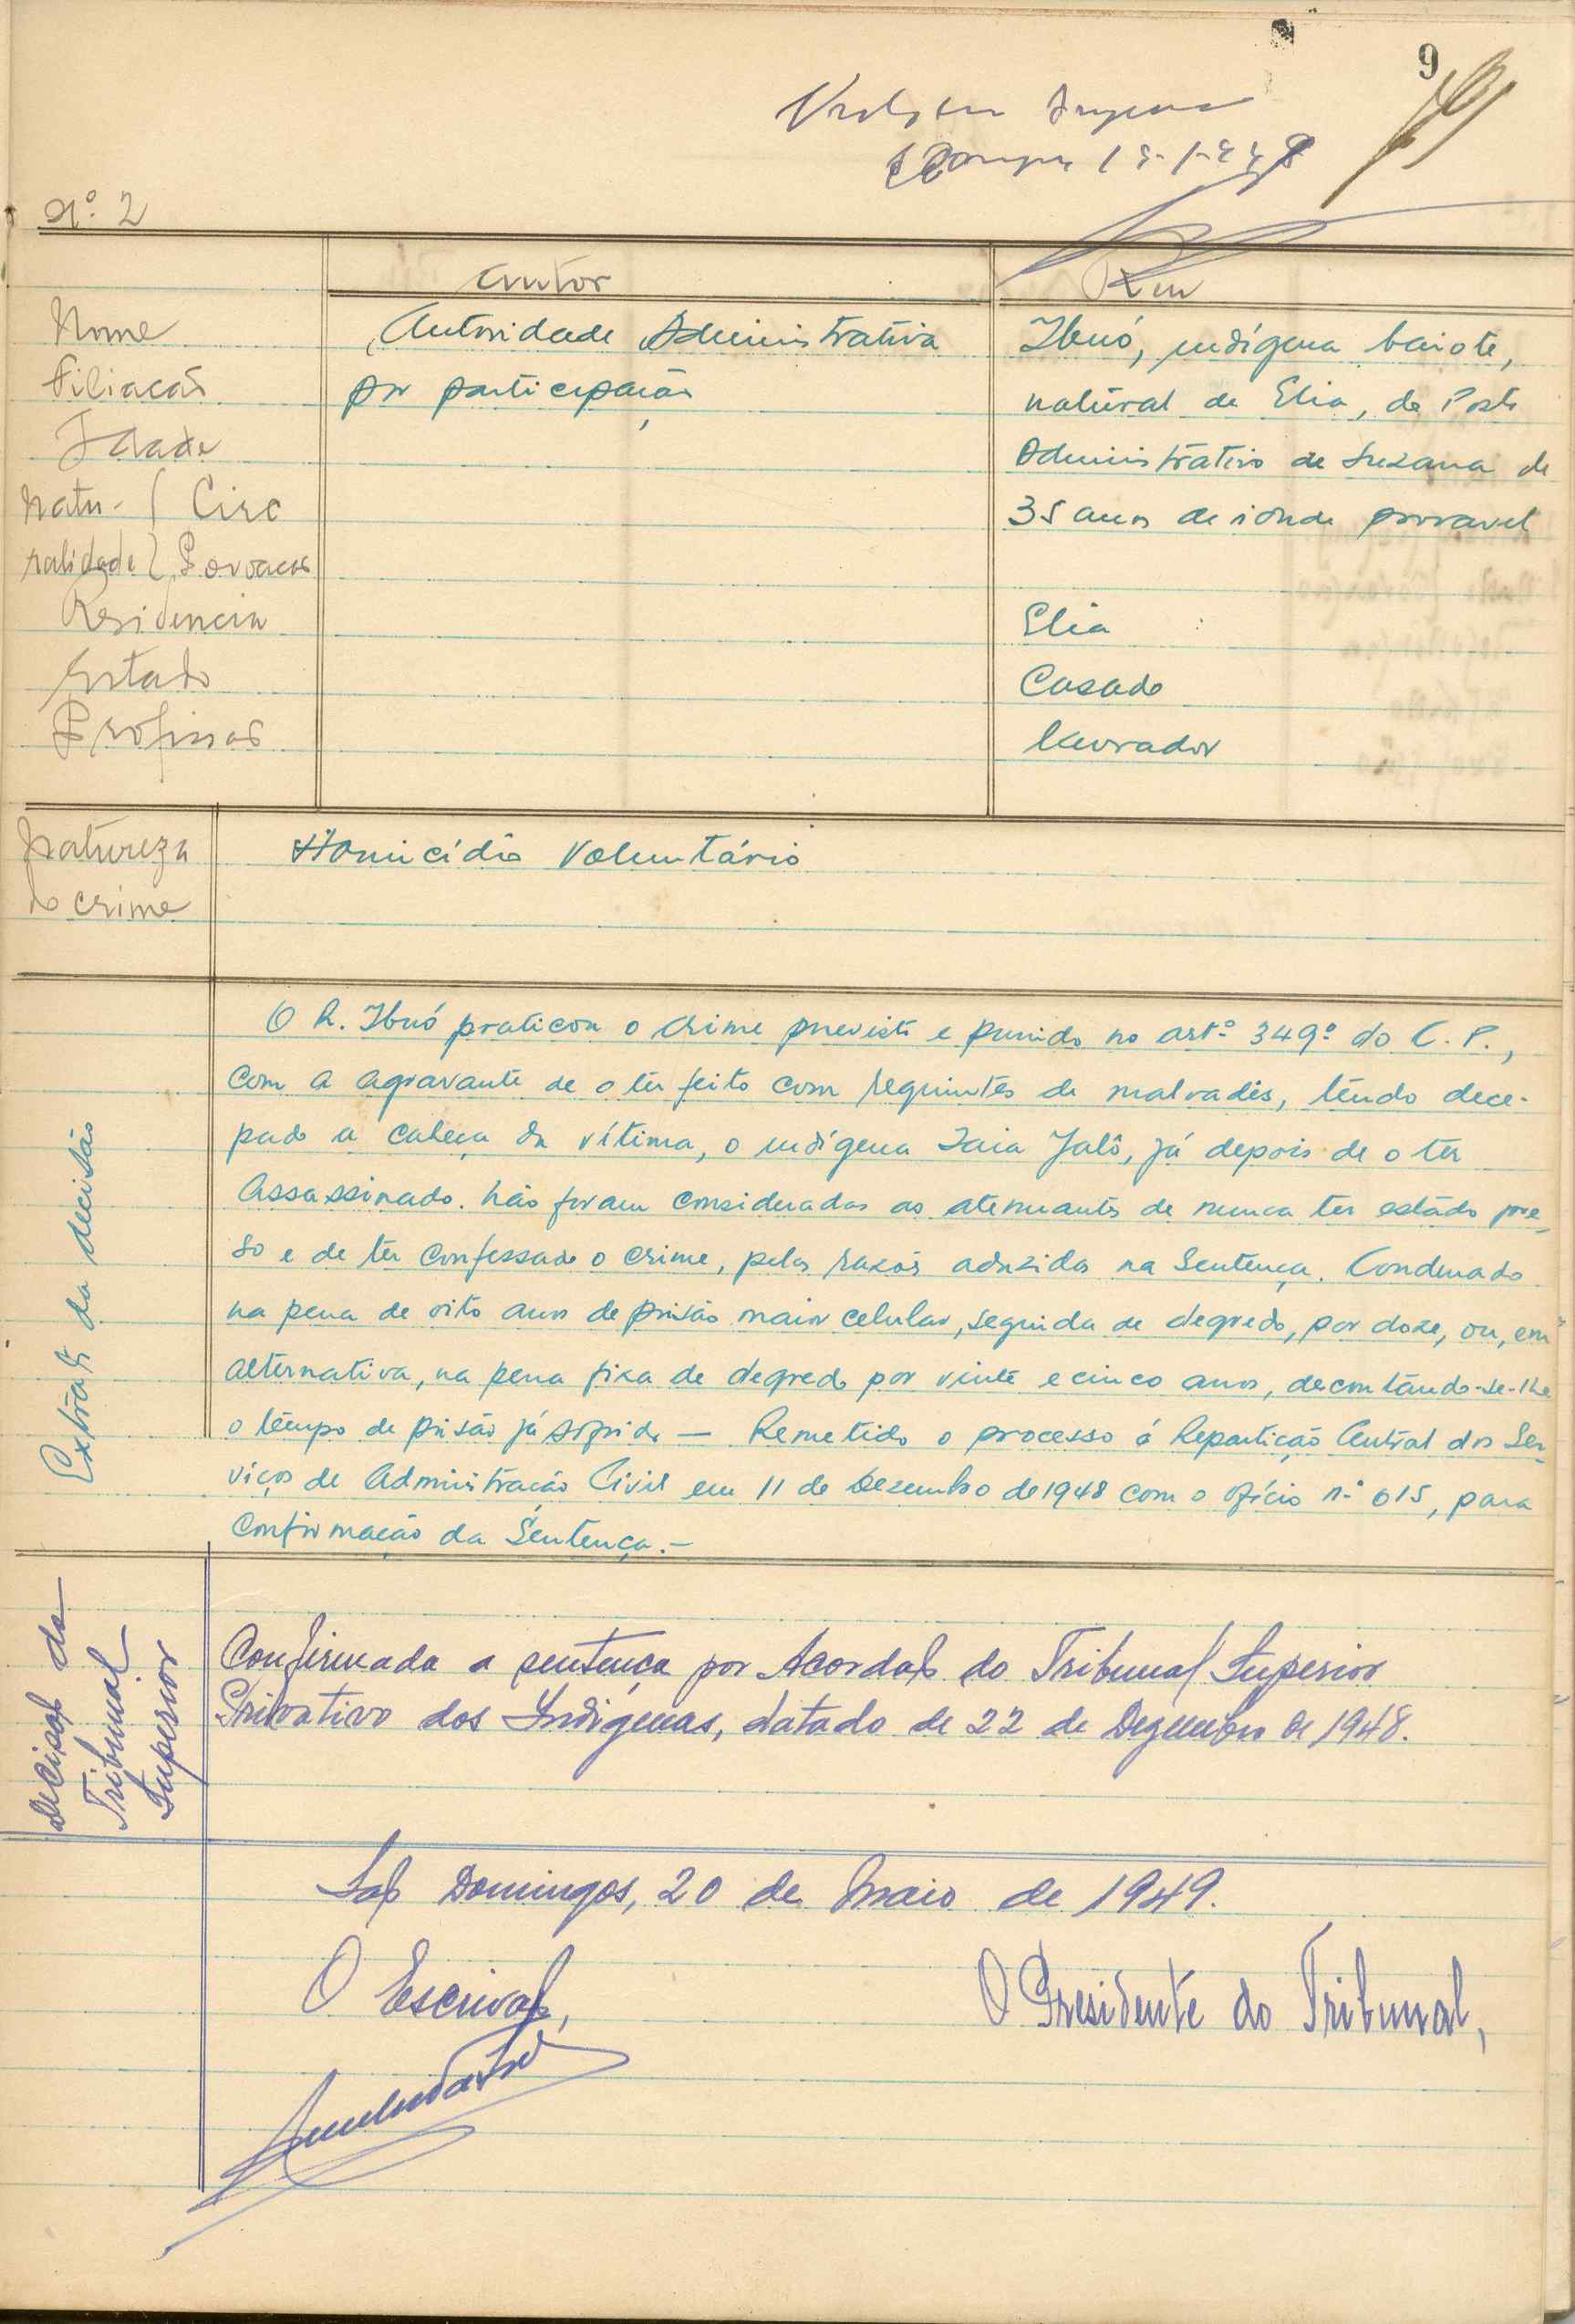 9
Nº. 2
Autor
Réu
Nome
Autoridade Administrativa
Ibuó, indígena baiote,
Filiação
por participação
natural de Elia, do Posto
Idade
Administrativo de Suzana de
Natu- { Circ
35 anos de idade provavel
ralidade { Povoação
Residencia
Elia
Estado
Casado
Profissão
lavrador
Natureza
do crime
Homicídio Voluntário
Extrato da decisão
O R. Ibuó praticou o crime previsto e punido no artº. 349º. do C. P.,
com a agravante de o ter feito com requintes de malvadês, tendo dece-
pado a cabeça da vítima, o indígena Jaia Jalô, já depois de o ter
assassinado. Não foram consideradas as atenuantes de nunca ter estado pre-
so e de ter confessado o crime, pelas razões aduzidas na Sentença. Condenado
na pena de oito anos de prisão maior celular, seguida de degredo, por doze, ou, em
alternativa, na pena fixa de degredo por vinte e cinco anos, descontando-se-lhe
o tempo de prisão já sofrido — Remetido o processo á Repartição Central dos Ser-
viços de Administração Civil em 11 de Dezembro de 1948 com o ofício nº 615, para
confirmação da Sentença.-
Decisão do
Tribunal
Superior
Confirmada a sentença por Acordão do Tribunal Superior
Privativo dos Indígenas, datado de 22 de Dezembro de 1948.
São Domingos, 20 de Maio de 1949.
O Escrivão,
O Presidente do Tribunal,